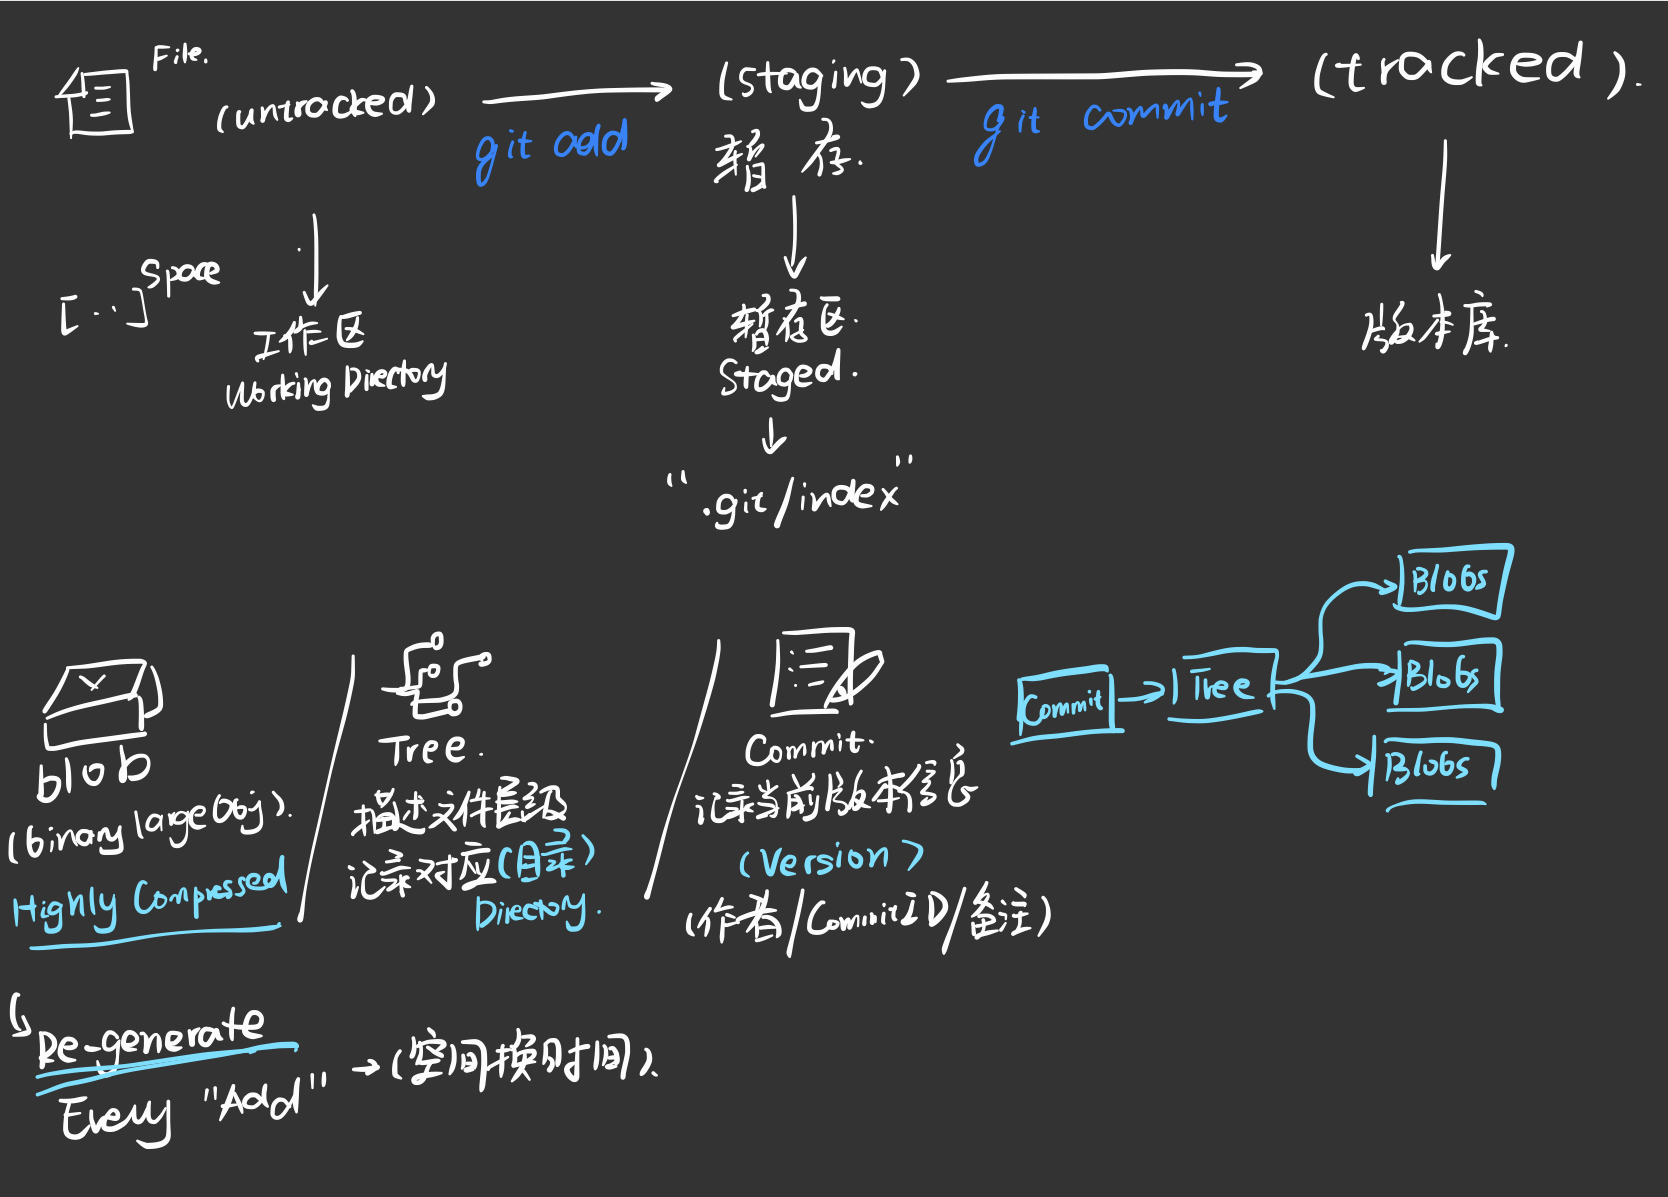 File.
(untracked)
git add
(staging)
暂 存.
git commit
(tracked).
[..] Space
工作区
Working Directory
暂存区.
Staged.
".git/index"
版本库.
blob
(binary large Obj).
Highly Compressed
Tree.
描述文件层级
记录对应(目录)
Directory.
Commit.
记录当前版本信息
(Version)
(作者/Commit ID/备注)
Commit
Tree
Blobs
Blobs
Blobs
Re-generate
Every "Add"
(空间换时间).